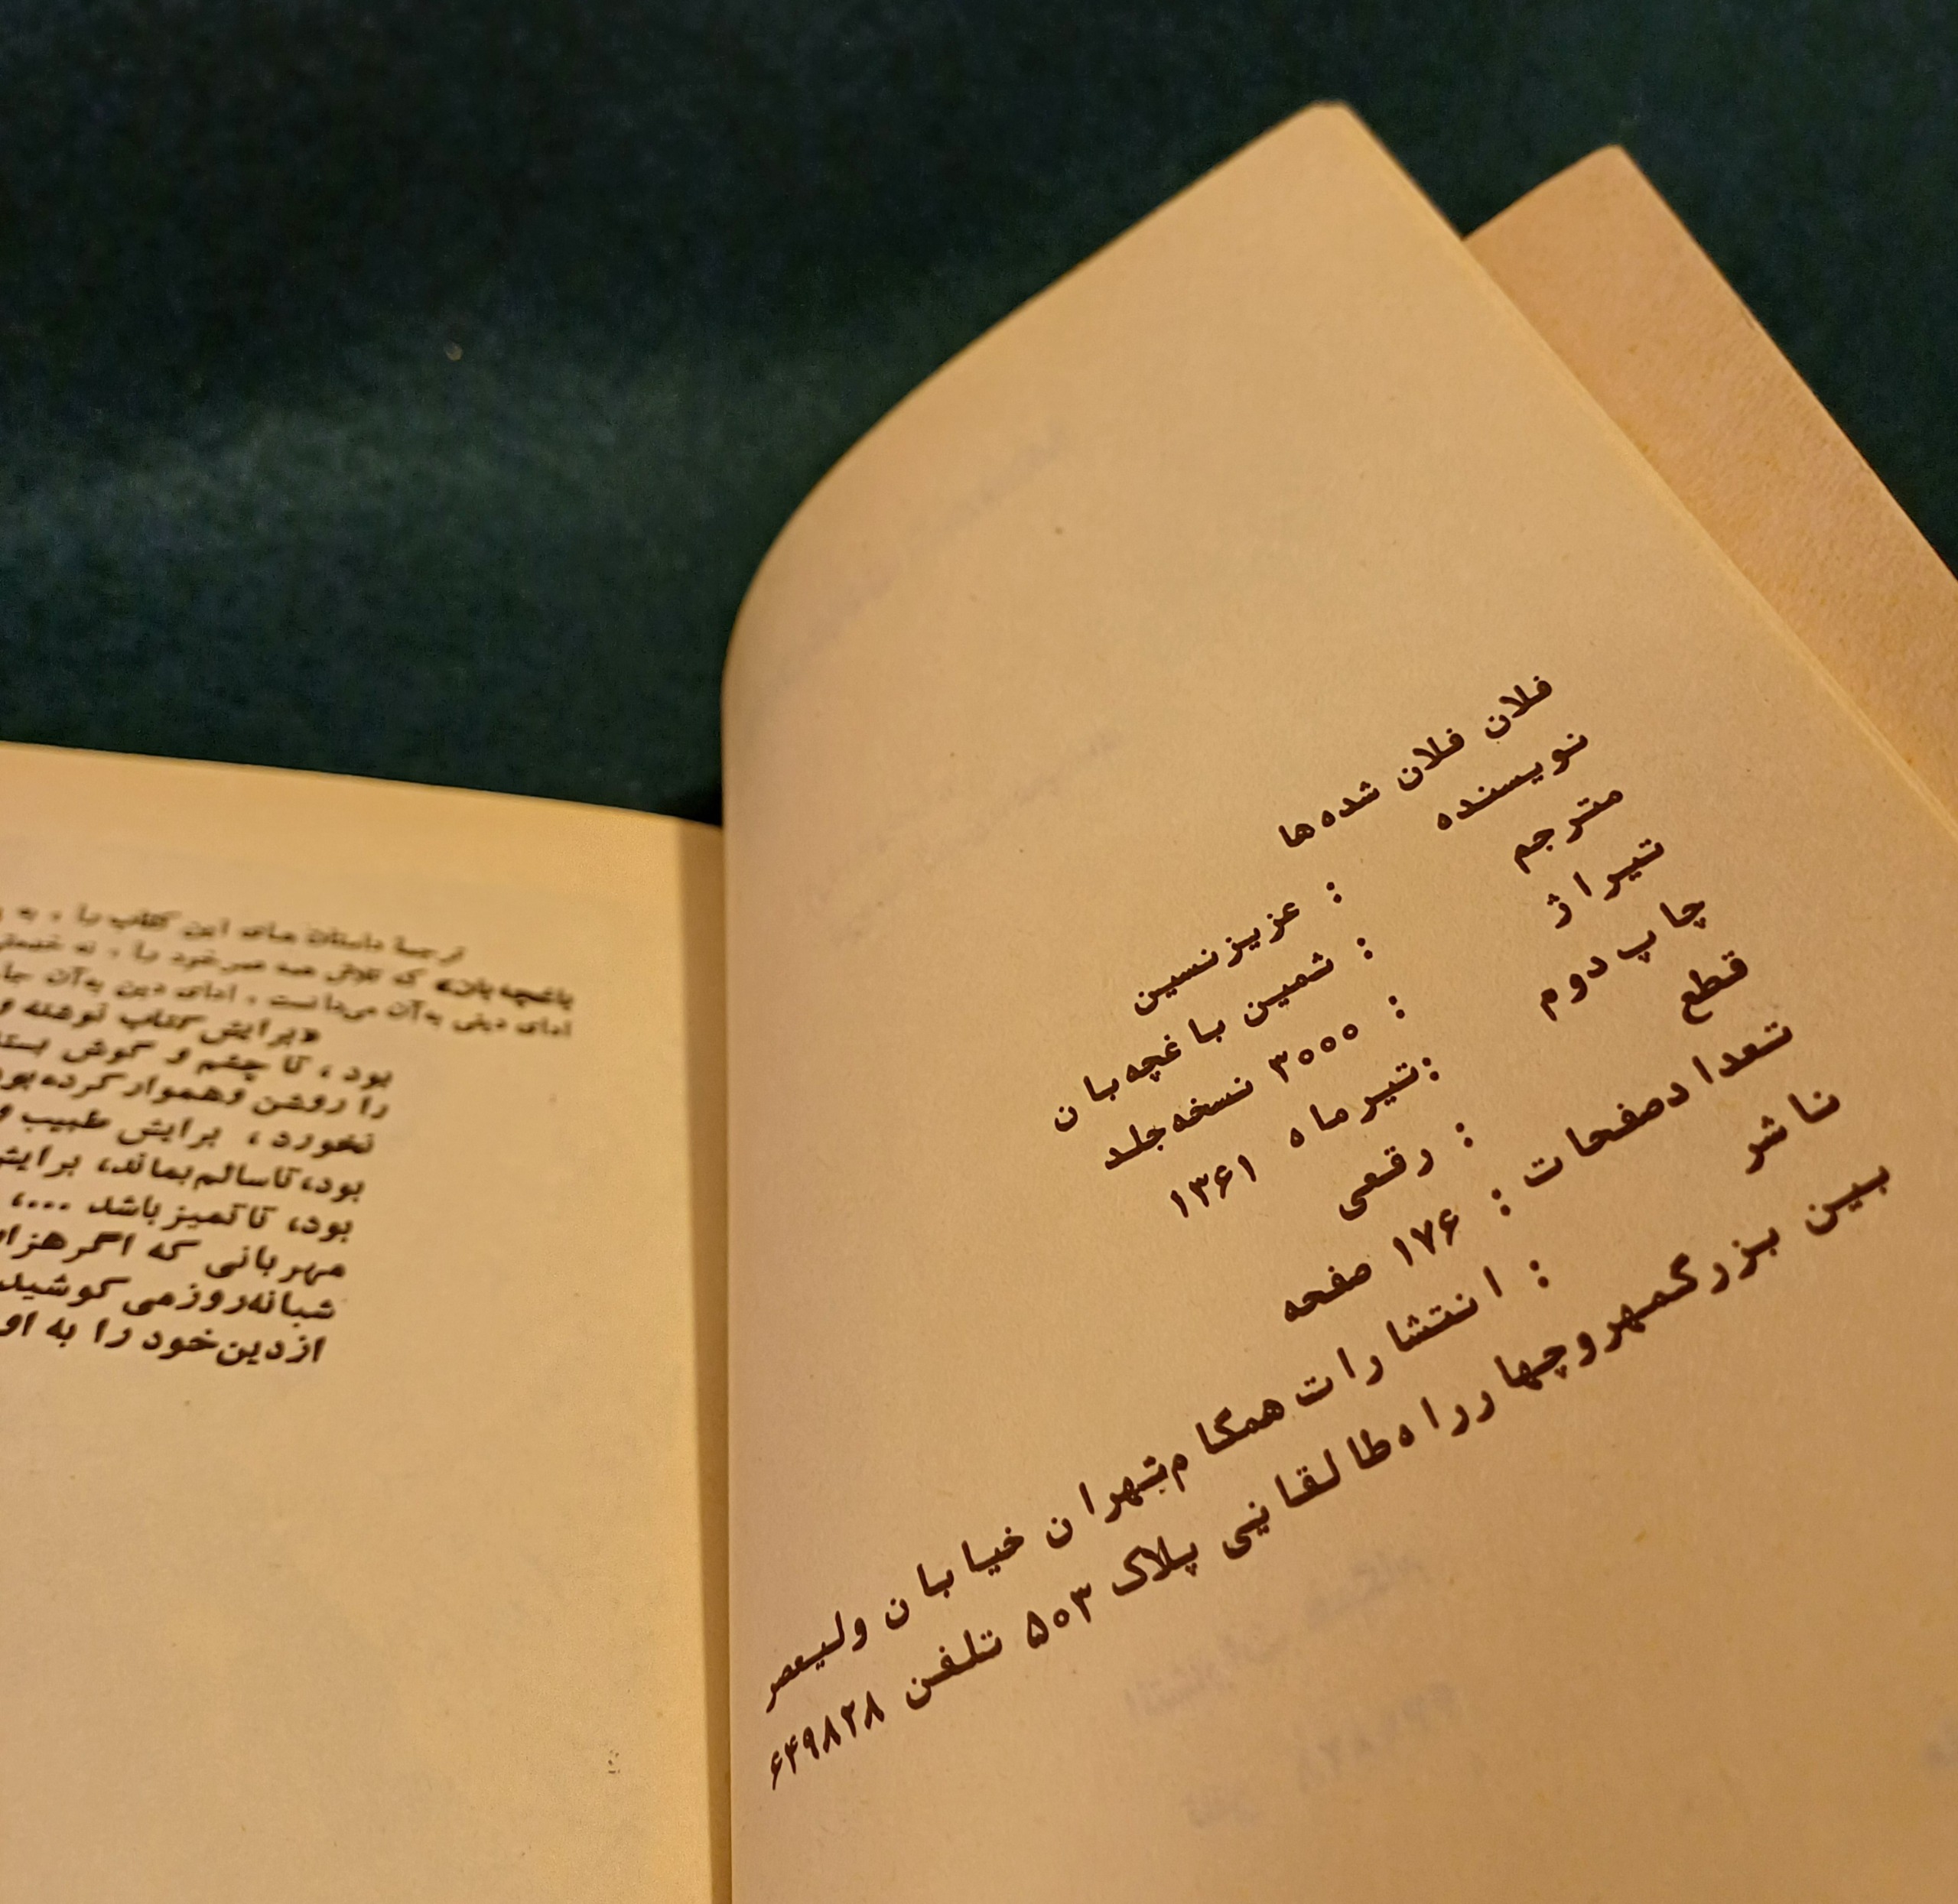 فلان فلان شده‌ها
نویسنده : عزیز نسین
مترجم : ثمین باغچه‌بان
تیراژ : ۳۰۰۰ نسخه جلد
چاپ دوم : تیر ماه ۱۳۶۱
قطع : رقعی
تعداد صفحات : ۱۷۶ صفحه
ناشر : انتشارات همگام بتهران خیابان ولیعصر
بین بزرگمهر و چهارراه طالقانی پلاک ۵۰۳ تلفن ۶۴۹۸۲۸
ترجمهٔ داستان های این کتاب را ، به
باغچه‌بان» که تلاش همه عمر خود را ، نه
ادای دینی به‌آن می‌دانست ، ادای دین به‌آن
«برایش کتاب نوشته و
بود ، تا چشم و گوش
را روشن و هموار کرده بود
نخورد ، برایش طبیب و
بود، تا سالم بماند، برایش
بود، تا تمیز باشد ...،
مهربانی که اگر هزار
شبانه‌روز می کوشید
از دین خود را به او